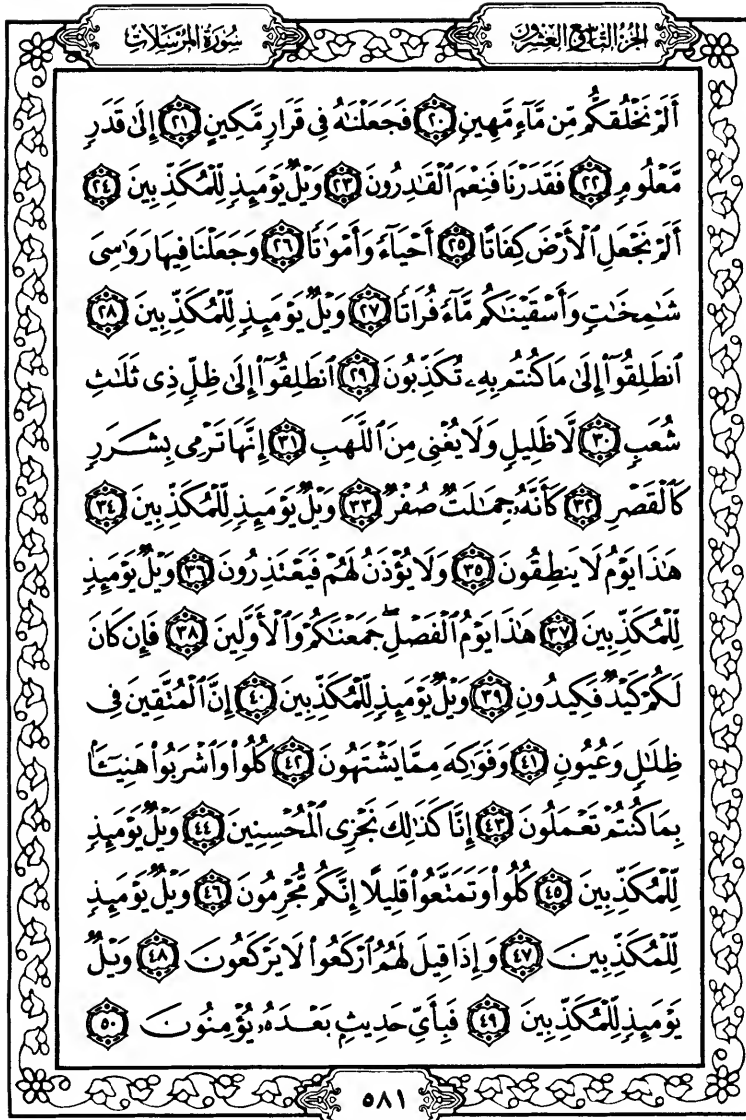 سُورَةُ المُرْسَلَاتِ
الجُزْءُ التَّاسِعُ وَالعِشْرُونَ
أَلَمْ نَخْلُقكُّم مِّن مَّآءٍ مَّهِينٍ ٢٠ فَجَعَلْنَٰهُ فِى قَرَارٍ مَّكِينٍ ٢١ إِلَىٰ قَدَرٍ
مَّعْلُومٍ ٢٢ فَقَدَرْنَا فَنِعْمَ ٱلْقَٰدِرُونَ ٢٣ وَيْلٌ يَوْمَئِذٍ لِّلْمُكَذِّبِينَ ٢٤
أَلَمْ نَجْعَلِ ٱلْأَرْضَ كِفَاتًا ٢٥ أَحْيَآءً وَأَمْوَٰتًا ٢٦ وَجَعَلْنَا فِيهَا رَوَٰسِىَ
شَٰمِخَٰتٍ وَأَسْقَيْنَٰكُم مَّآءً فُرَاتًا ٢٧ وَيْلٌ يَوْمَئِذٍ لِّلْمُكَذِّبِينَ ٢٨
ٱنطَلِقُوٓا۟ إِلَىٰ مَا كُنتُم بِهِۦ تُكَذِّبُونَ ٢٩ ٱنطَلِقُوٓا۟ إِلَىٰ ظِلٍّ ذِى ثَلَٰثِ
شُعَبٍ ٣٠ لَّا ظَلِيلٍ وَلَا يُغْنِى مِنَ ٱللَّهَبِ ٣١ إِنَّهَا تَرْمِى بِشَرَرٍ
كَٱلْقَصْرِ ٣٢ كَأَنَّهُۥ جِمَٰلَتٌ صُفْرٌ ٣٣ وَيْلٌ يَوْمَئِذٍ لِّلْمُكَذِّبِينَ ٣٤
هَٰذَا يَوْمُ لَا يَنطِقُونَ ٣٥ وَلَا يُؤْذَنُ لَهُمْ فَيَعْتَذِرُونَ ٣٦ وَيْلٌ يَوْمَئِذٍ
لِّلْمُكَذِّبِينَ ٣٧ هَٰذَا يَوْمُ ٱلْفَصْلِ ۖ جَمَعْنَٰكُمْ وَٱلْأَوَّلِينَ ٣٨ فَإِن كَانَ
لَكُمْ كَيْدٌ فَكِيدُونِ ٣٩ وَيْلٌ يَوْمَئِذٍ لِّلْمُكَذِّبِينَ ٤٠ إِنَّ ٱلْمُتَّقِينَ فِى
ظِلَٰلٍ وَعُيُونٍ ٤١ وَفَوَٰكِهَ مِمَّا يَشْتَهُونَ ٤٢ كُلُوا۟ وَٱشْرَبُوا۟ هَنِيٓـًٔۢا
بِمَا كُنتُمْ تَعْمَلُونَ ٤٣ إِنَّا كَذَٰلِكَ نَجْزِى ٱلْمُحْسِنِينَ ٤٤ وَيْلٌ يَوْمَئِذٍ
لِّلْمُكَذِّبِينَ ٤٥ كُلُوا۟ وَتَمَتَّعُوا۟ قَلِيلًا إِنَّكُم مُّجْرِمُونَ ٤٦ وَيْلٌ يَوْمَئِذٍ
لِّلْمُكَذِّبِينَ ٤٧ وَإِذَا قِيلَ لَهُمُ ٱرْكَعُوا۟ لَا يَرْكَعُونَ ٤٨ وَيْلٌ
يَوْمَئِذٍ لِّلْمُكَذِّبِينَ ٤٩ فَبِأَىِّ حَدِيثٍۭ بَعْدَهُۥ يُؤْمِنُونَ ٥٠
٥٨١